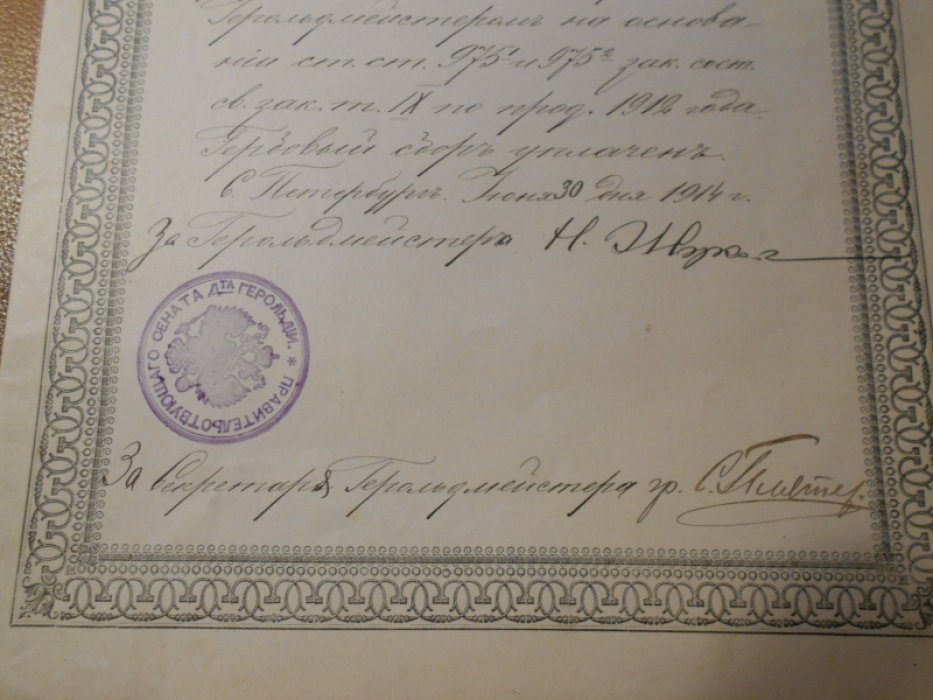 Герольдмейстеромъ на основа-
ніи ст. ст. 975¹ и 975² зак. сост.
св. зак. т. IX по прод. 1912 года.
Гербовый сборъ уплаченъ.
С. Петербургъ. Іюня 30 дня 1914 г.
За Герольдмейстера Н.
ПРАВИТЕЛЬСТВУЮЩАГО СЕНАТА Д-ТА ГЕРОЛЬДІИ. *
За Секретаря Герольдмейстера гр. С. Плятеръ